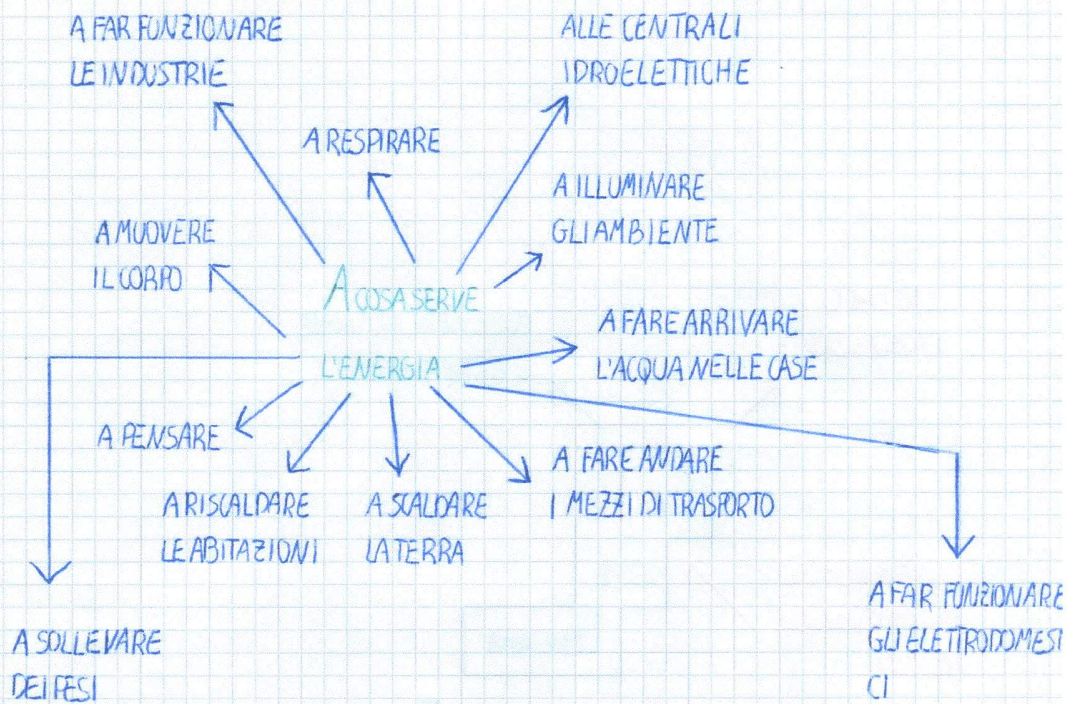 A FAR FUNZIONARE
LE INDUSTRIE
ALLE CENTRALI
IDROELETTICHE
A RESPIRARE
A ILLUMINARE
GLI AMBIENTE
A MUOVERE
IL CORPO
A COSA SERVE
L'ENERGIA
A FARE ARRIVARE
L'ACQUA NELLE CASE
A PENSARE
A RISCALDARE
LE ABITAZIONI
A SCALDARE
LA TERRA
A FARE ANDARE
I MEZZI DI TRASPORTO
A SOLLEVARE
DEI PESI
A FAR FUNZIONARE
GLI ELETTRODOMESI
CI